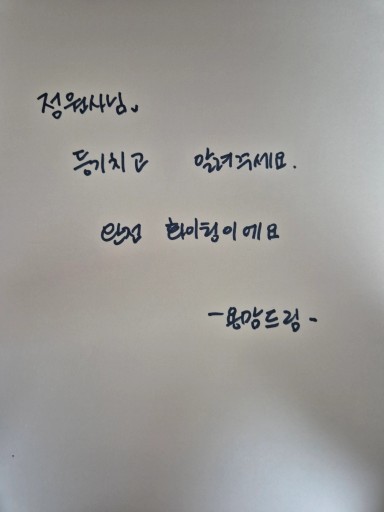 정원사님.
등기치고 알려주세요.
완전 화이팅이에요
-용암드림-